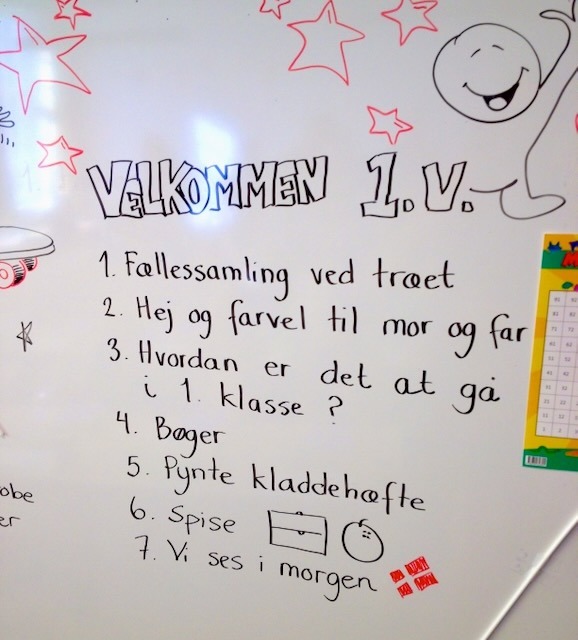 VELKOMMEN 1.V.
1. Fællessamling ved træet
2. Hej og farvel til mor og far
3. Hvordan er det at gå
i 1. klasse ?
4. Bøger
5. Pynte kladdehæfte
6. Spise
7. Vi ses i morgen
obe
er